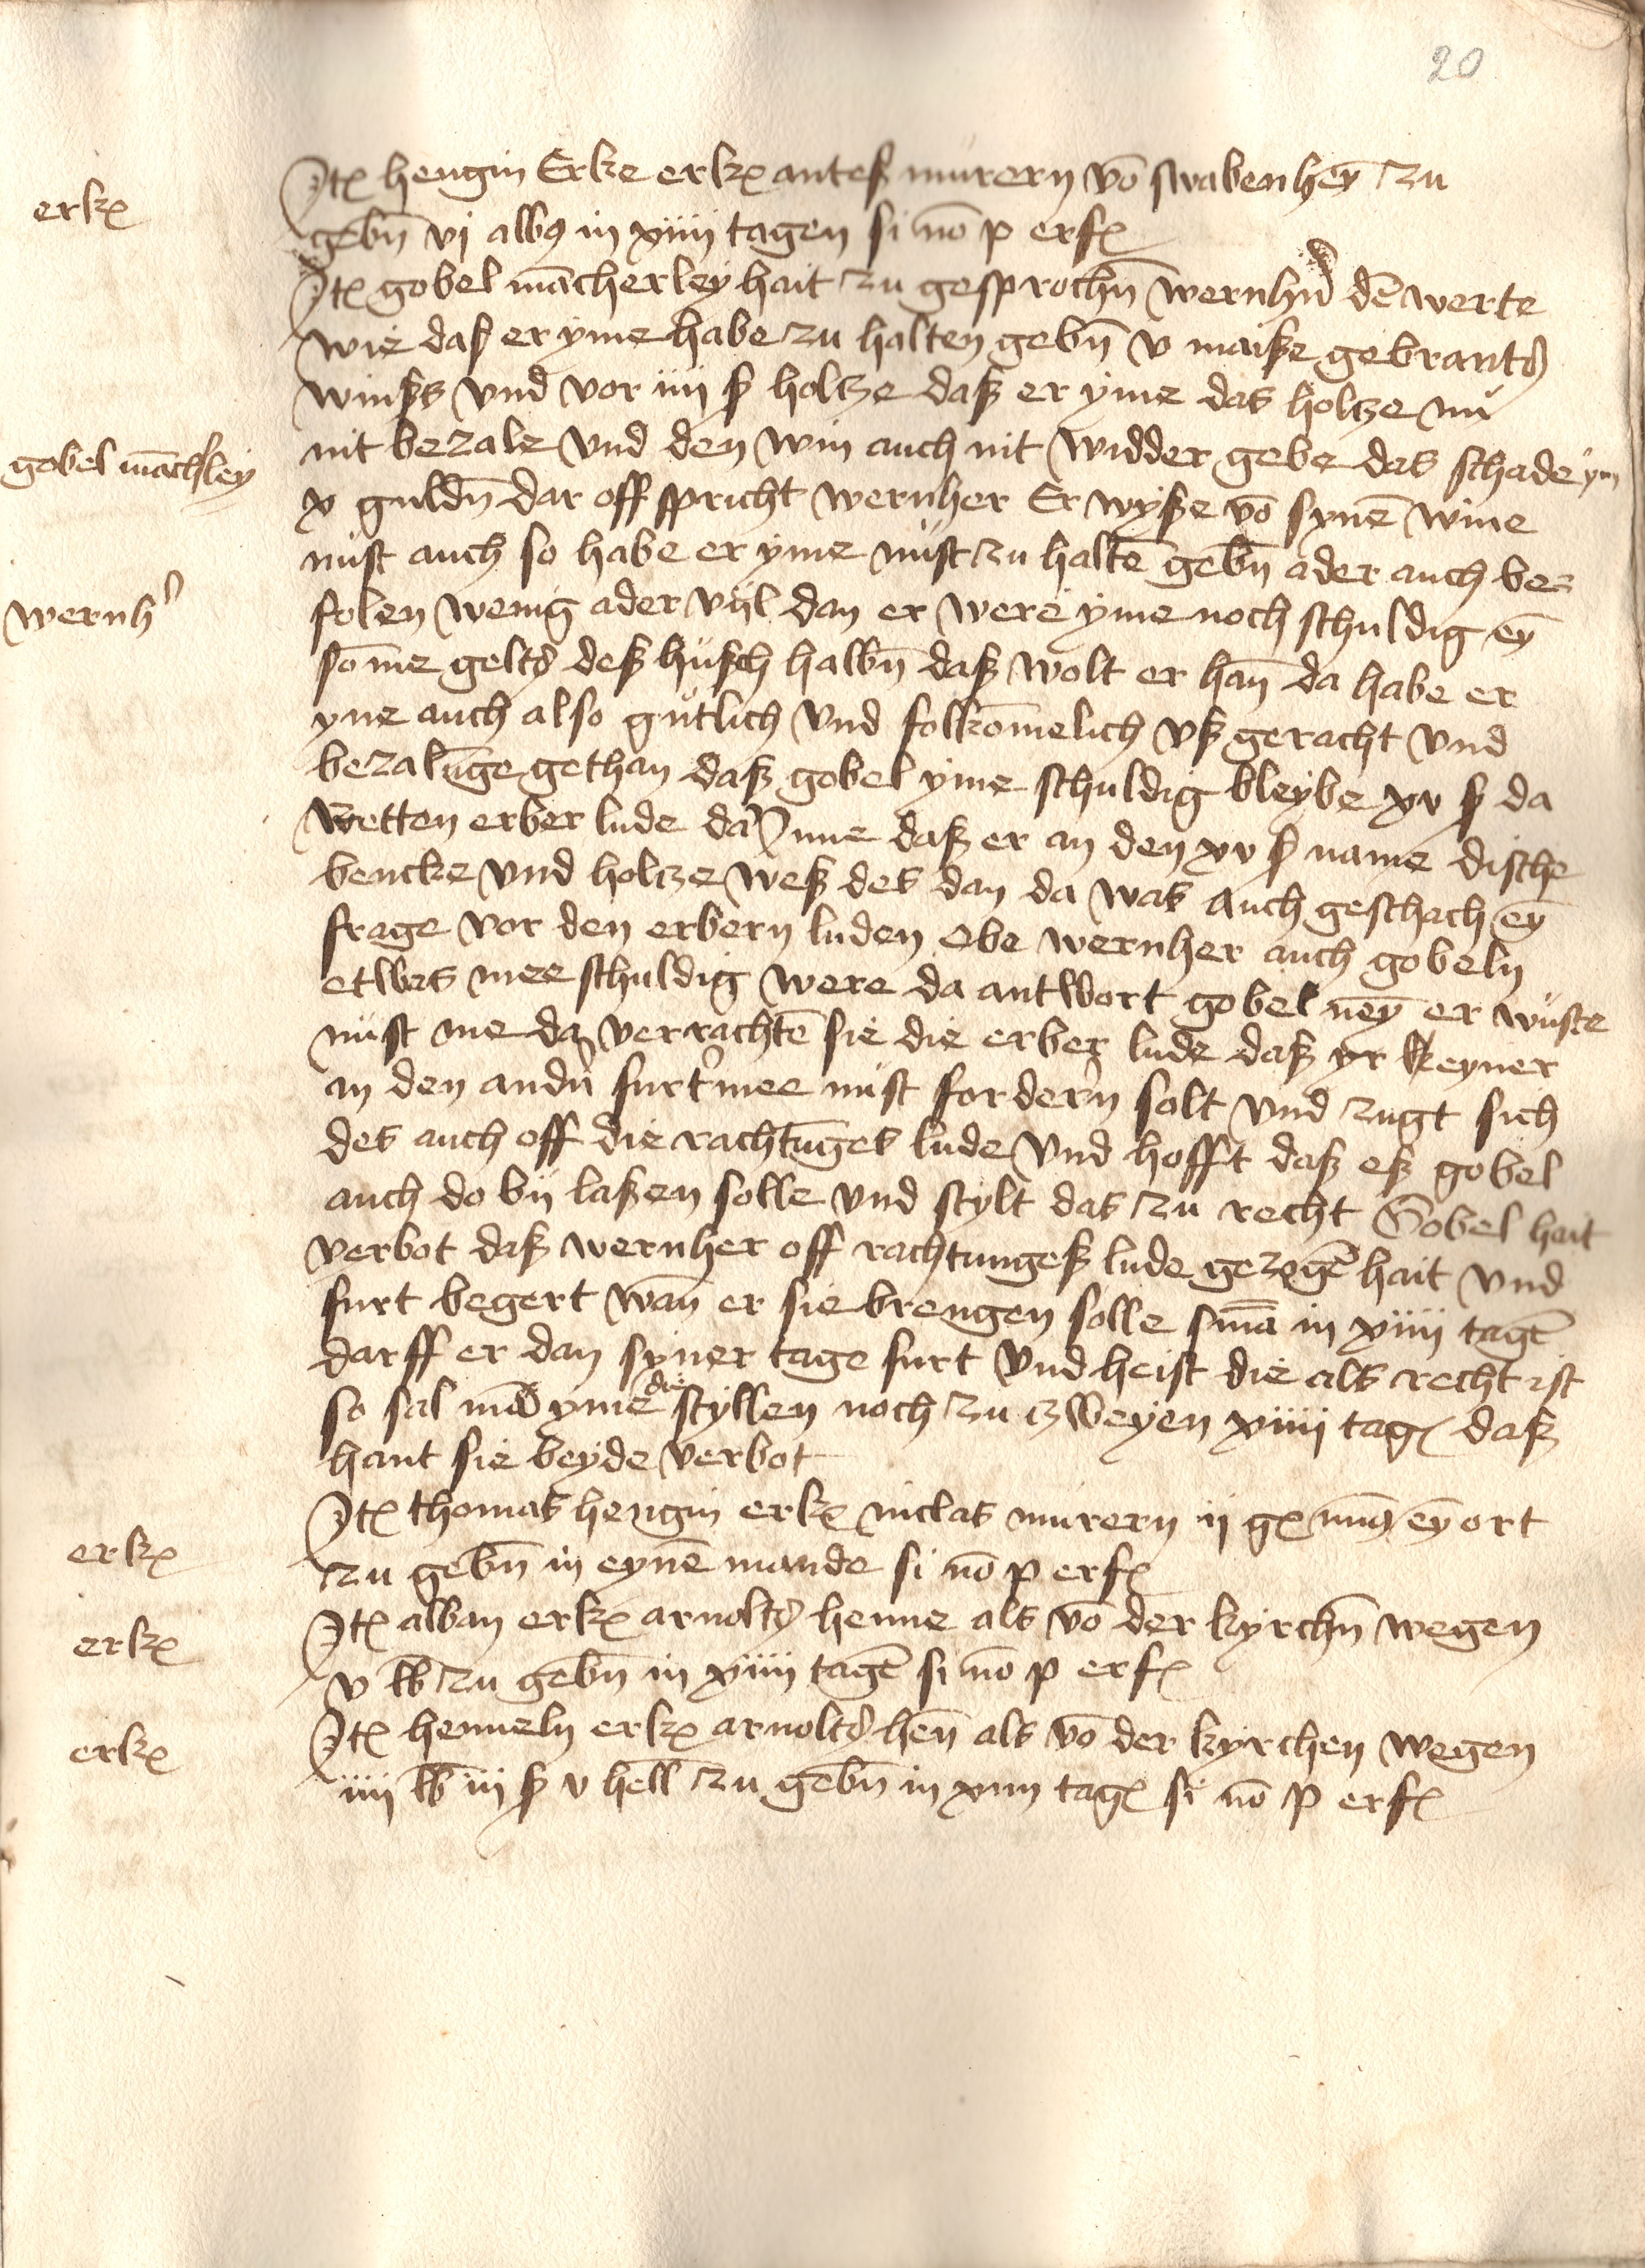 20
erkꝫ
Jtꝫ hengin Erke erkꝫ anteß murern võ swabenheỹ zu
gebn̄ vj albꝰ in xiiij tagen si nō p erfꝫ
Jtꝫ gobel mācherley hait zu gesprochn̄ wernhn̄ dē werte
wie daß er yme habe zu halten gebn̄ v maiße gebrantꝭ
winßs vnd vor iiij ß holtze daß er yme das holtze nů
gobel māchsley
nit bezale vnd den win auch nit widder gebe das schade ym
x guldn̄ dar off spricht wernher Er wyße võ synē wine
nust auch so habe er yme nust zu haltē gebn̄ ader auch be=
wernhꝰ
folen wenig ader vijl dan er were yme noch schuldig eȳ
som̄e geltꝭ deß husch halbn̄ daß wolt er han̄ da habe er
yne auch also gutlich vnd folkom̄elich vß geracht vnd
bezalūge gethan daß gobel yme schuldig bleybe xv ß da
retten erber lude daꝛ Jnne daß er an den xv ß name dische
bencke vnd holtze weß des dan da was auch geschach eȳ
frage vor den erbern luden obe wernher auch gobeln
etwas mee schuldig were da antwort gobel neȳ er wuste
nust me da verrachtē sie die erber lude daß yr keyner
an den andn̄ furtꝰmee nust fordern solt vnd zugt sich
des auch off die rachtūges lude vnd hofft daß eß gobel
auch do bij laßen solle vnd stylt das zu recht Gobel hait
verbot daß wernher off rachtungeß lude gezogē hait vnd
furt begert wan̄ er sie brengen solle sn̄ia in xiiij tagē
darff er dan syner tage furt vnd heist die als recht ist
so sal mā yme die styllen noch zu zweyen xiiij tagꝫ daß
hant sie beyde verbot
erkꝫ
Jtꝫ thomas hengin erkꝫ niclas murern ij gꝫ mīꝰ eȳ ort
zu gebn̄ in eynē mande si nō p erfꝫ
erkꝫ
Jtꝫ alban erkꝫ arnoltꝭ henne als võ der kyrchn̄ wegen
v lb zu gebn̄ in xiiij tagē si nō p erfꝫ
erkꝫ
Jtꝫ henneln erkꝫ arnoltꝭ hen̄ als võ der kyrchen wegen
iiij lb iij ß v hell zu gebn̄ in xiiij tagꝫ si nō p erfꝫ